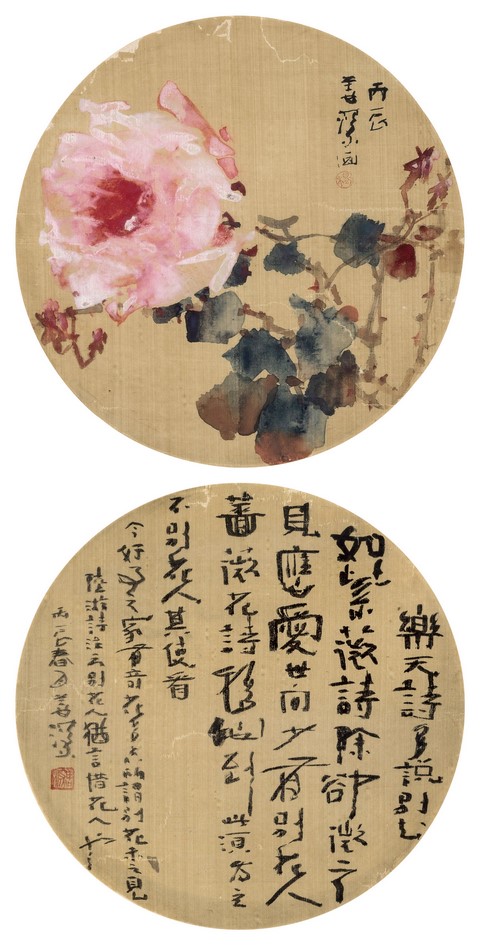 丙辰
姜
画
樂天詩多說別花
如紫薇詩除卻微之
見應愛世間少有別花人
薔薇花詩移他到此須為主
不別花人莫使看
今好事之家有奇花多矣所謂別花未之見
陸游詩注云別花人猶言惜花人也
丙辰春月姜